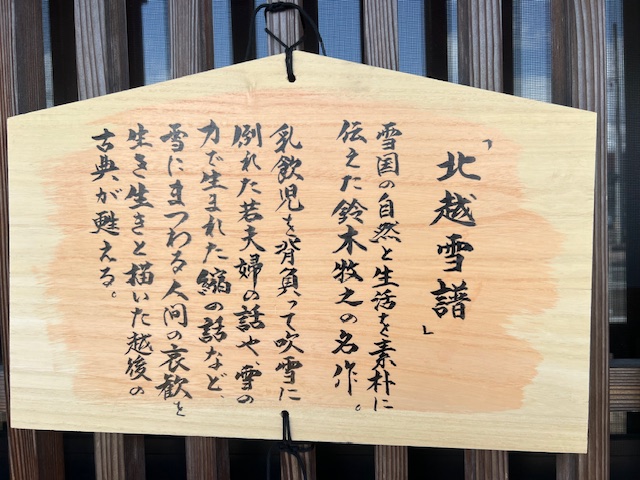 「北越雪譜」
雪国の自然と生活を素朴に
伝えた鈴木牧之の名作。
乳飲児を背負って吹雪に
倒れた若夫婦の話や、雪の
力で生まれた縮の話など、
雪にまつわる人間の哀歓を
生き生きと描いた越後の
古典が甦える。